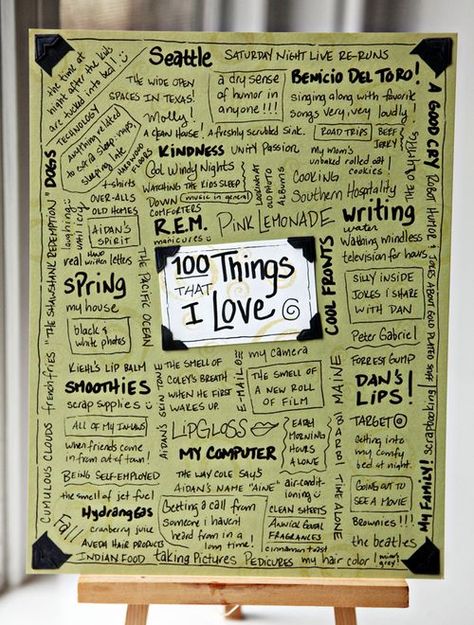 the time at
night after the kids
are tucked into bed!
Seattle
SATURDAY NIGHT LIVE RE-RUNS
THE WIDE OPEN
SPACES IN TEXAS!
a dry sense
of humor in
anyone!!!
BENICIO DEL TORO!
singing along with favorite
songs very, very loudly!
A GOOD CRY
TECHNOLOGY
anything related
to sleeping late
Molly!
A CLEAN HOUSE!
A freshly scrubbed sink.
ROAD TRIPS
BEEF
JERKY
DOGS
HARDWOOD
FLOORS
KINDNESS
UNITY
PASSION
my mom's
unbaked rolled oat
cookies!
t-shirts
Cool Windy Nights
WATCHING THE KIDS SLEEP
LOOKING AT
OLD PHOTO
ALBUMS
COOKING
Southern Hospitality
OVER-ALLS
OLD HOMES
DOWN
COMFORTERS
music in general
laughing
AIDAN'S
SPIRIT
R.E.M.
manicures
PINK LEMONADE
writing
water
Watching mindless
television for hours
real
HAND
WRITTEN
letters
"THE SHAWSHANK REDEMPTION"
SPRING
my house
THE PACIFIC OCEAN
100 Things
THAT
I LOVE
COOL FRONTS
SILLY INSIDE
JOKES I SHARE
WITH DAN
Peter Gabriel
black &
white photos
frenchfries
KIEHL'S LIP BALM
SMOOTHIES
scrap supplies
THE SMELL OF
COLEY'S BREATH
WHEN HE FIRST
WAKES UP.
E-MAIL
my camera
THE SMELL OF
a NEW ROLL OF
FILM
MAINE
FORREST GUMP
DAN'S
LIPS!
TARGET
scrapbooking
AIDAN'S SKIN TONE
CUMULOUS CLOUDS
ALL OF MY IN-LAWS
when friends come
in from out of town!
LIPGLOSS
MY COMPUTER
EARLY
MORNING
HOURS
ALONE
Getting into
my comfy
bed at night.
BEING SELF-EMPLOYED
THE WAY COLE SAYS
AIDAN'S NAME "AINE"
air-condit-
ioning
THE ALONE
GOING OUT TO
SEE A MOVIE
MY FAMILY!
the smell of jet fuel
HYDRANGEAS
cranberry juice
Getting a call from
someone i haven't
heard from in a
long time!
CLEAN SHEETS
ANNICK GOUTAL
FRAGRANCES
cinnamon toast
Brownies!!!
the beatles
Fall
AVEDA HAIR PRODUCTS
INDIAN FOOD
taking Pictures
PEDICURES
my hair color!